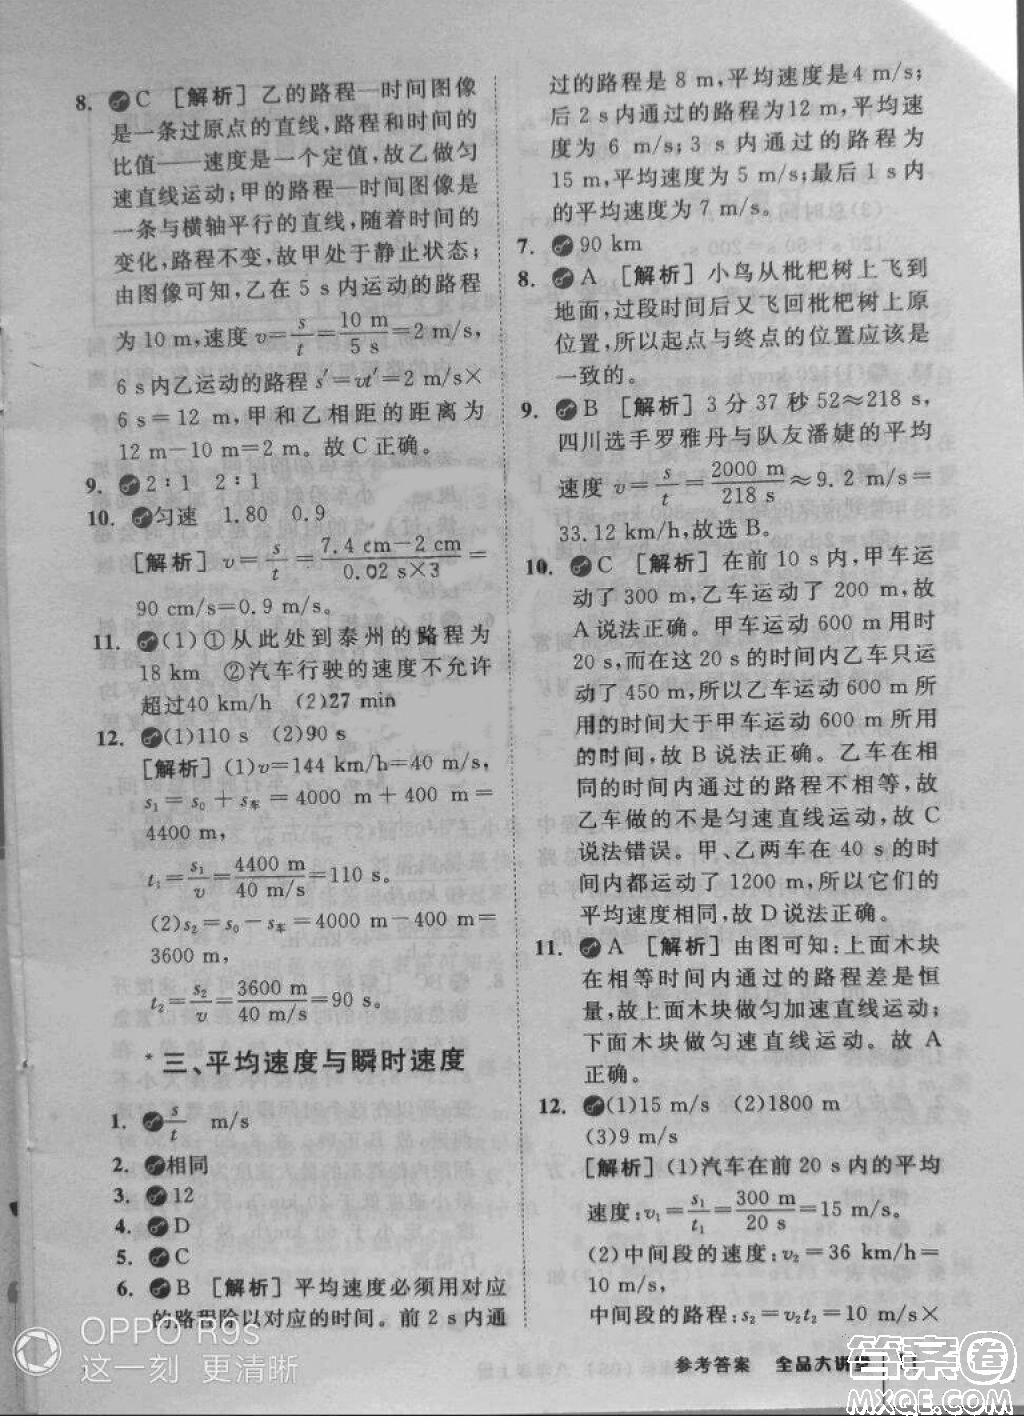 8. C [解析]乙的路程—时间图像
是一条过原点的直线,路程和时间的
比值——速度是一个定值,故乙做匀
速直线运动;甲的路程—时间图像是
一条与横轴平行的直线,随着时间的
变化,路程不变,故甲处于静止状态;
由图像可知,乙在 5 s内运动的路程
为 10 m,速度 v=s/t=10 m/5 s=2 m/s,
6 s内乙运动的路程 s′=vt′=2 m/s×
6 s=12 m,甲和乙相距的距离为
12 m-10 m=2 m。故 C 正确。
9. 2∶1 2∶1
10. 匀速 1.80 0.9
[解析] v=s/t=7.4 cm-2 cm/0.02 s×3=
90 cm/s=0.9 m/s。
11. (1)①从此处到泰州的路程为
18 km ②汽车行驶的速度不允许
超过40 km/h (2)27 min
12. (1)110 s (2)90 s
[解析](1)v=144 km/h=40 m/s,
s₁=s₀+s车=4000 m+400 m=
4400 m,
t₁=s₁/v=4400 m/40 m/s=110 s。
(2)s₂=s₀-s车=4000 m-400 m=
3600 m,
t₂=s₂/v=3600 m/40 m/s=90 s。
*三、平均速度与瞬时速度
1. s/t m/s
2. 相同
3. 12
4. D
5. C
6. B [解析]平均速度必须用对应
的路程除以对应的时间。前 2 s内通
过的路程是 8 m,平均速度是4 m/s;
后 2 s内通过的路程为12 m,平均速
度为 6 m/s;3 s内通过的路程为
15 m,平均速度为 5 m/s;最后 1 s内
的平均速度为 7 m/s。
7. 90 km
8. A [解析]小鸟从枇杷树上飞到
地面,过段时间后又飞回枇杷树上原
位置,所以起点与终点的位置应该是
一致的。
9. B [解析]3 分 37 秒 52≈218 s,
四川选手罗雅丹与队友潘婕的平均
速度 v=s/t=2000 m/218 s≈9.2 m/s=
33.12 km/h,故选 B。
10. C [解析]在前 10 s内,甲车运
动了 300 m,乙车运动了 200 m,故
A说法正确。甲车运动 600 m用时
20 s,而在这 20 s的时间内乙车只运
动了 450 m,所以乙车运动 600 m所
用的时间大于甲车运动 600 m所用
的时间,故 B 说法正确。乙车在相
同的时间内通过的路程不相等,故
乙车做的不是匀速直线运动,故 C
说法错误。甲、乙两车在 40 s的时
间内都运动了 1200 m,所以它们的
平均速度相同,故 D 说法正确。
11. A [解析]由图可知:上面木块
在相等时间内通过的路程差是恒
量,故上面木块做匀加速直线运动;
下面木块做匀速直线运动。故 A
正确。
12. (1)15 m/s (2)1800 m
(3)9 m/s
[解析](1)汽车在前 20 s内的平均
速度:v₁=s₁/t₁=300 m/20 s=15 m/s。
(2)中间段的速度:v₂=36 km/h=
10 m/s,
中间段的路程:s₂=v₂t₂=10 m/s×
OPPO R9s
这一刻 更清晰
参考答案 全品大讲堂
答案圈
MXQE.COM